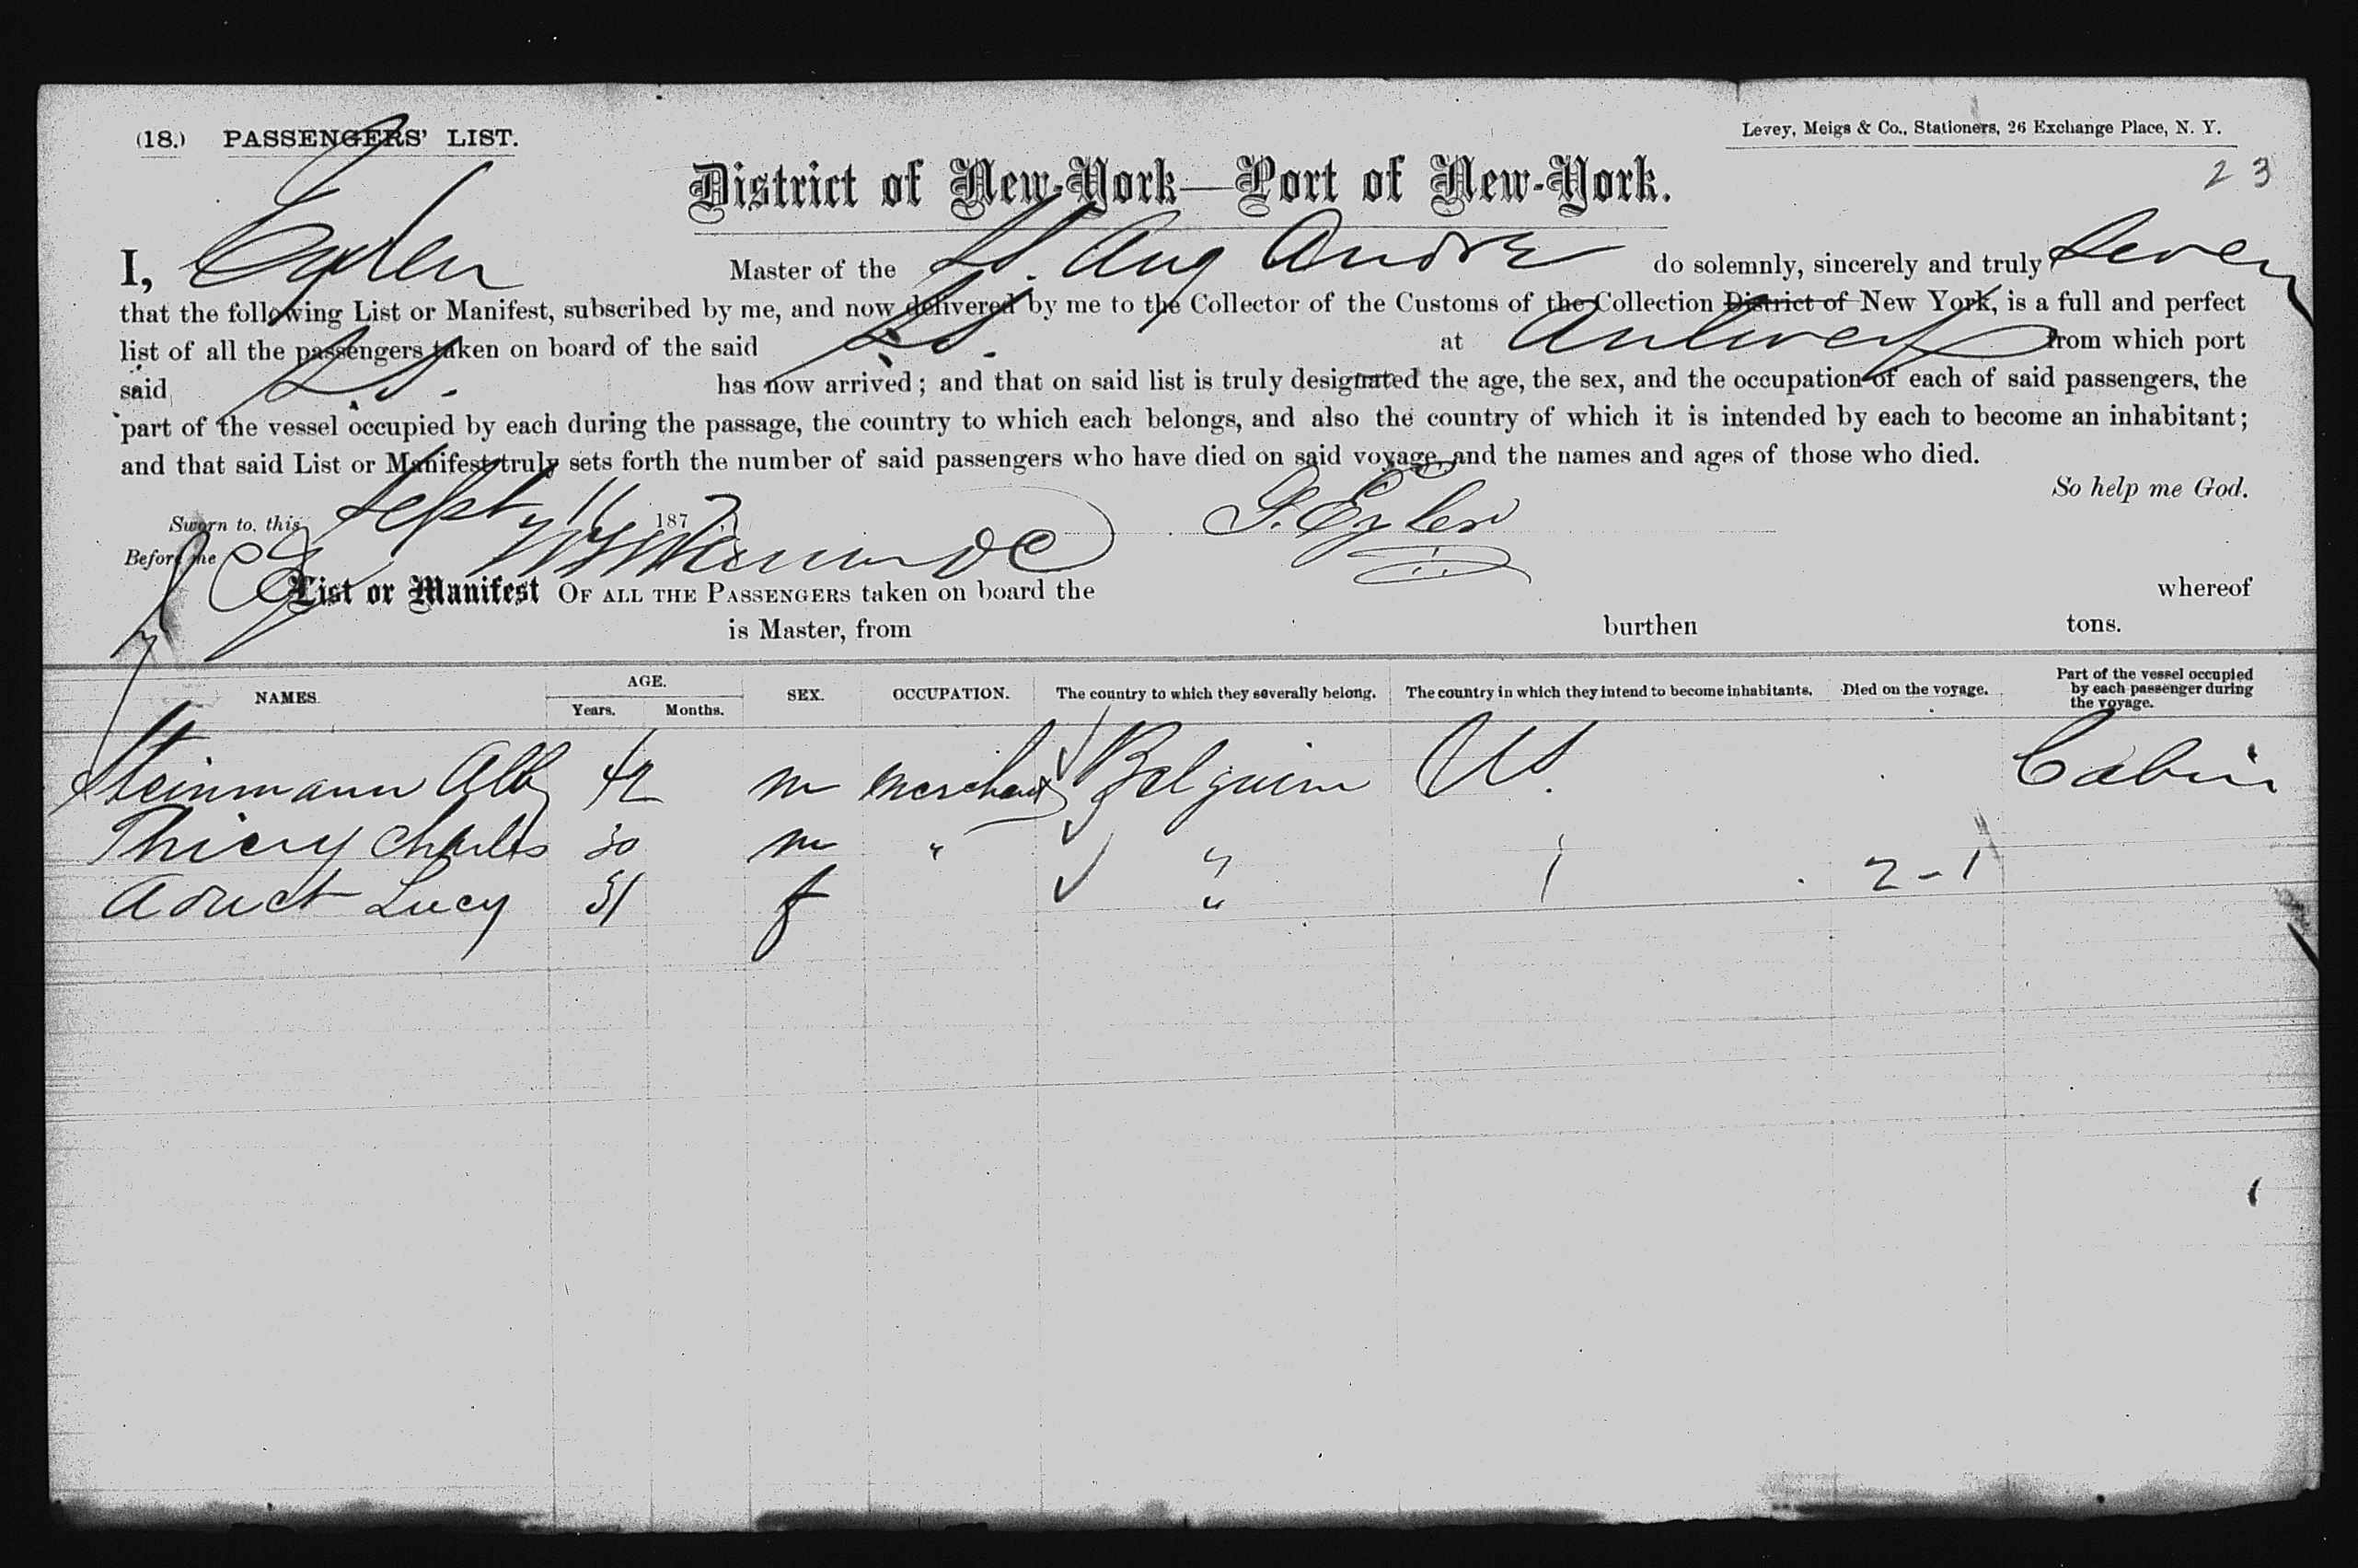 (18.) PASSENGERS' LIST.
Levey, Meigs & Co., Stationers, 26 Exchange Place, N. Y.
23
District of New-York—Port of New-York.
I, Eyler Master of the SS. Aug Andre do solemnly, sincerely and truly swear
that the following List or Manifest, subscribed by me, and now delivered by me to the Collector of the Customs of the Collection District of New York, is a full and perfect
list of all the passengers taken on board of the said SS. at Antwerp from which port
said SS. has now arrived; and that on said list is truly designated the age, the sex, and the occupation of each of said passengers, the
part of the vessel occupied by each during the passage, the country to which each belongs, and also the country of which it is intended by each to become an inhabitant;
and that said List or Manifest truly sets forth the number of said passengers who have died on said voyage, and the names and ages of those who died.
So help me God.
Sworn to, this Sept 11 1877 G. Eyler
Before me
List or Manifest OF ALL THE PASSENGERS taken on board the whereof
is Master, from burthen tons.
NAMES AGE. Years. Months. SEX. OCCUPATION. The country to which they severally belong. The country in which they intend to become inhabitants. Died on the voyage. Part of the vessel occupied by each passenger during the voyage.
Steinmann Alb 42 m merchant Belguim US. Cabin
Thiery Charles 30 m " "
Lucy 31 f " 1 2-1